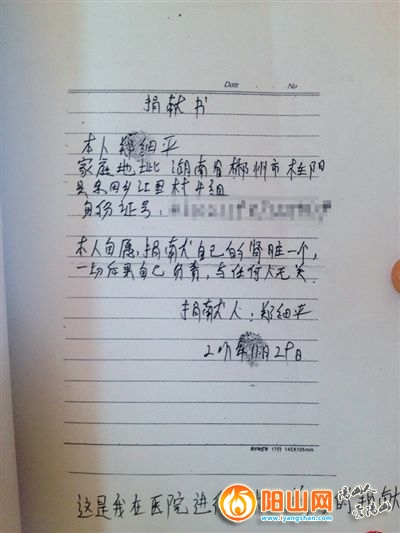 Date . . No
捐献书
本人郑细平
家庭地址 湖南省郴州市桂阳
县 乡 村 组
身份证号:
本人自愿,捐献自己的肾脏一个,
一切后果自己负责,与任何人无关.
捐献人:郑细平
月29日
17行 145X106mm
这是我在医院进行 的 献
阳山网
www.iyangshan.com